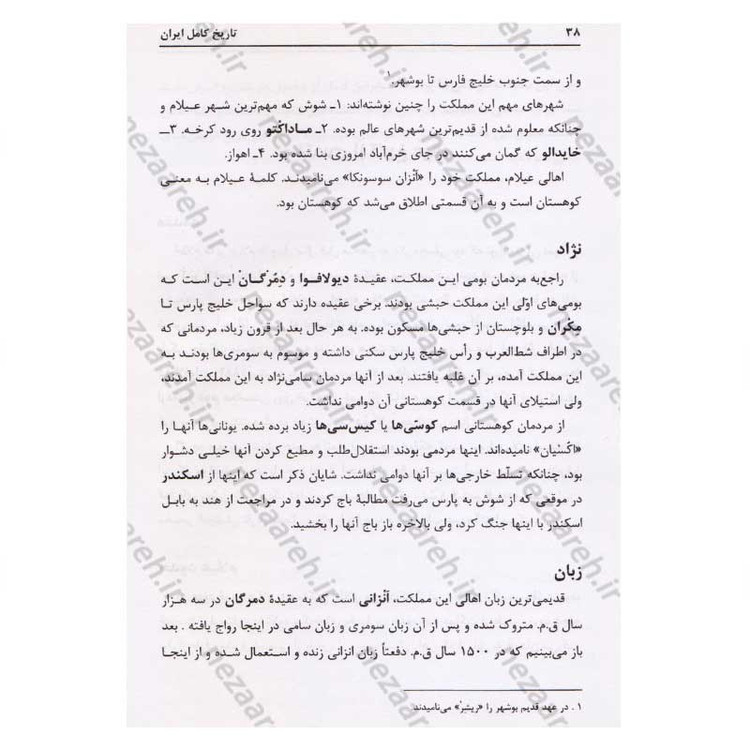 ۳۸
تاریخ کامل ایران
و از سمت جنوب خلیج فارس تا بوشهر.۱
شهرهای مهم این مملکت را چنین نوشته‌اند: ۱ـ شوش که مهم‌ترین شهر عیلام و
چنانکه معلوم شده از قدیم‌ترین شهرهای عالم بوده. ۲ـ ماداکتو روی رود کرخه. ۳ـ
خایدالو که گمان می‌کنند در جای خرم‌آباد امروزی بنا شده بود. ۴ـ اهواز.
اهالی عیلام، مملکت خود را «انْزان سوسونکا» می‌نامیدند. کلمهٔ عیلام به معنی
کوهستان است و به آن قسمتی اطلاق می‌شد که کوهستان بود.
نژاد
راجع‌به مردمان بومی این مملکت، عقیدهٔ دیولافوا و دِمُرگان این است که
بومی‌های اوّلی این مملکت حبشی بودند. برخی عقیده دارند که سواحل خلیج پارس تا
مکران و بلوچستان از حبشی‌ها مسکون بوده. به هر حال بعد از قرون زیاد، مردمانی که
در اطراف شط‌العرب و رأس خلیج پارس سکنی داشته و موسوم به سومری‌ها بودند به
این مملکت آمده، بر آن غلبه یافتند. بعد از آنها مردمان سامی‌نژاد به این مملکت آمدند،
ولی استیلای آنها در قسمت کوهستانی آن دوامی نداشت.
از مردمان کوهستانی اسم کوسّی‌ها یا کیس‌سی‌ها زیاد برده شده. یونانی‌ها آنها را
«اکْسْیان» نامیده‌اند. اینها مردمی بودند استقلال‌طلب و مطیع کردن آنها خیلی دشوار
بود، چنانکه تسلّط خارجی‌ها بر آنها دوامی نداشت. شایان ذکر است که اینها از اسکندر
در موقعی که از شوش به پارس می‌رفت مطالبهٔ باج کردند و در مراجعت از هند به بابل
اسکندر با اینها جنگ کرد، ولی بالاخره باز باج آنها را بخشید.
زبان
قدیمی‌ترین زبان اهالی این مملکت، اَنْزانی است که به عقیدهٔ دمرگان در سه هزار
سال ق.م. متروک شده و پس از آن زبان سومری و زبان سامی در اینجا رواج یافته . بعد
باز می‌بینیم که در ۱۵۰۰ سال ق.م. دفعتاً زبان انزانی زنده و استعمال شده و از اینجا
۱ . در عهد قدیم بوشهر را «ریشیر» می‌نامیدند
nezaareh.ir
nezaareh.ir
nezaareh.ir
nezaareh.ir
nezaareh.ir
nezaareh.ir
nezaareh.ir